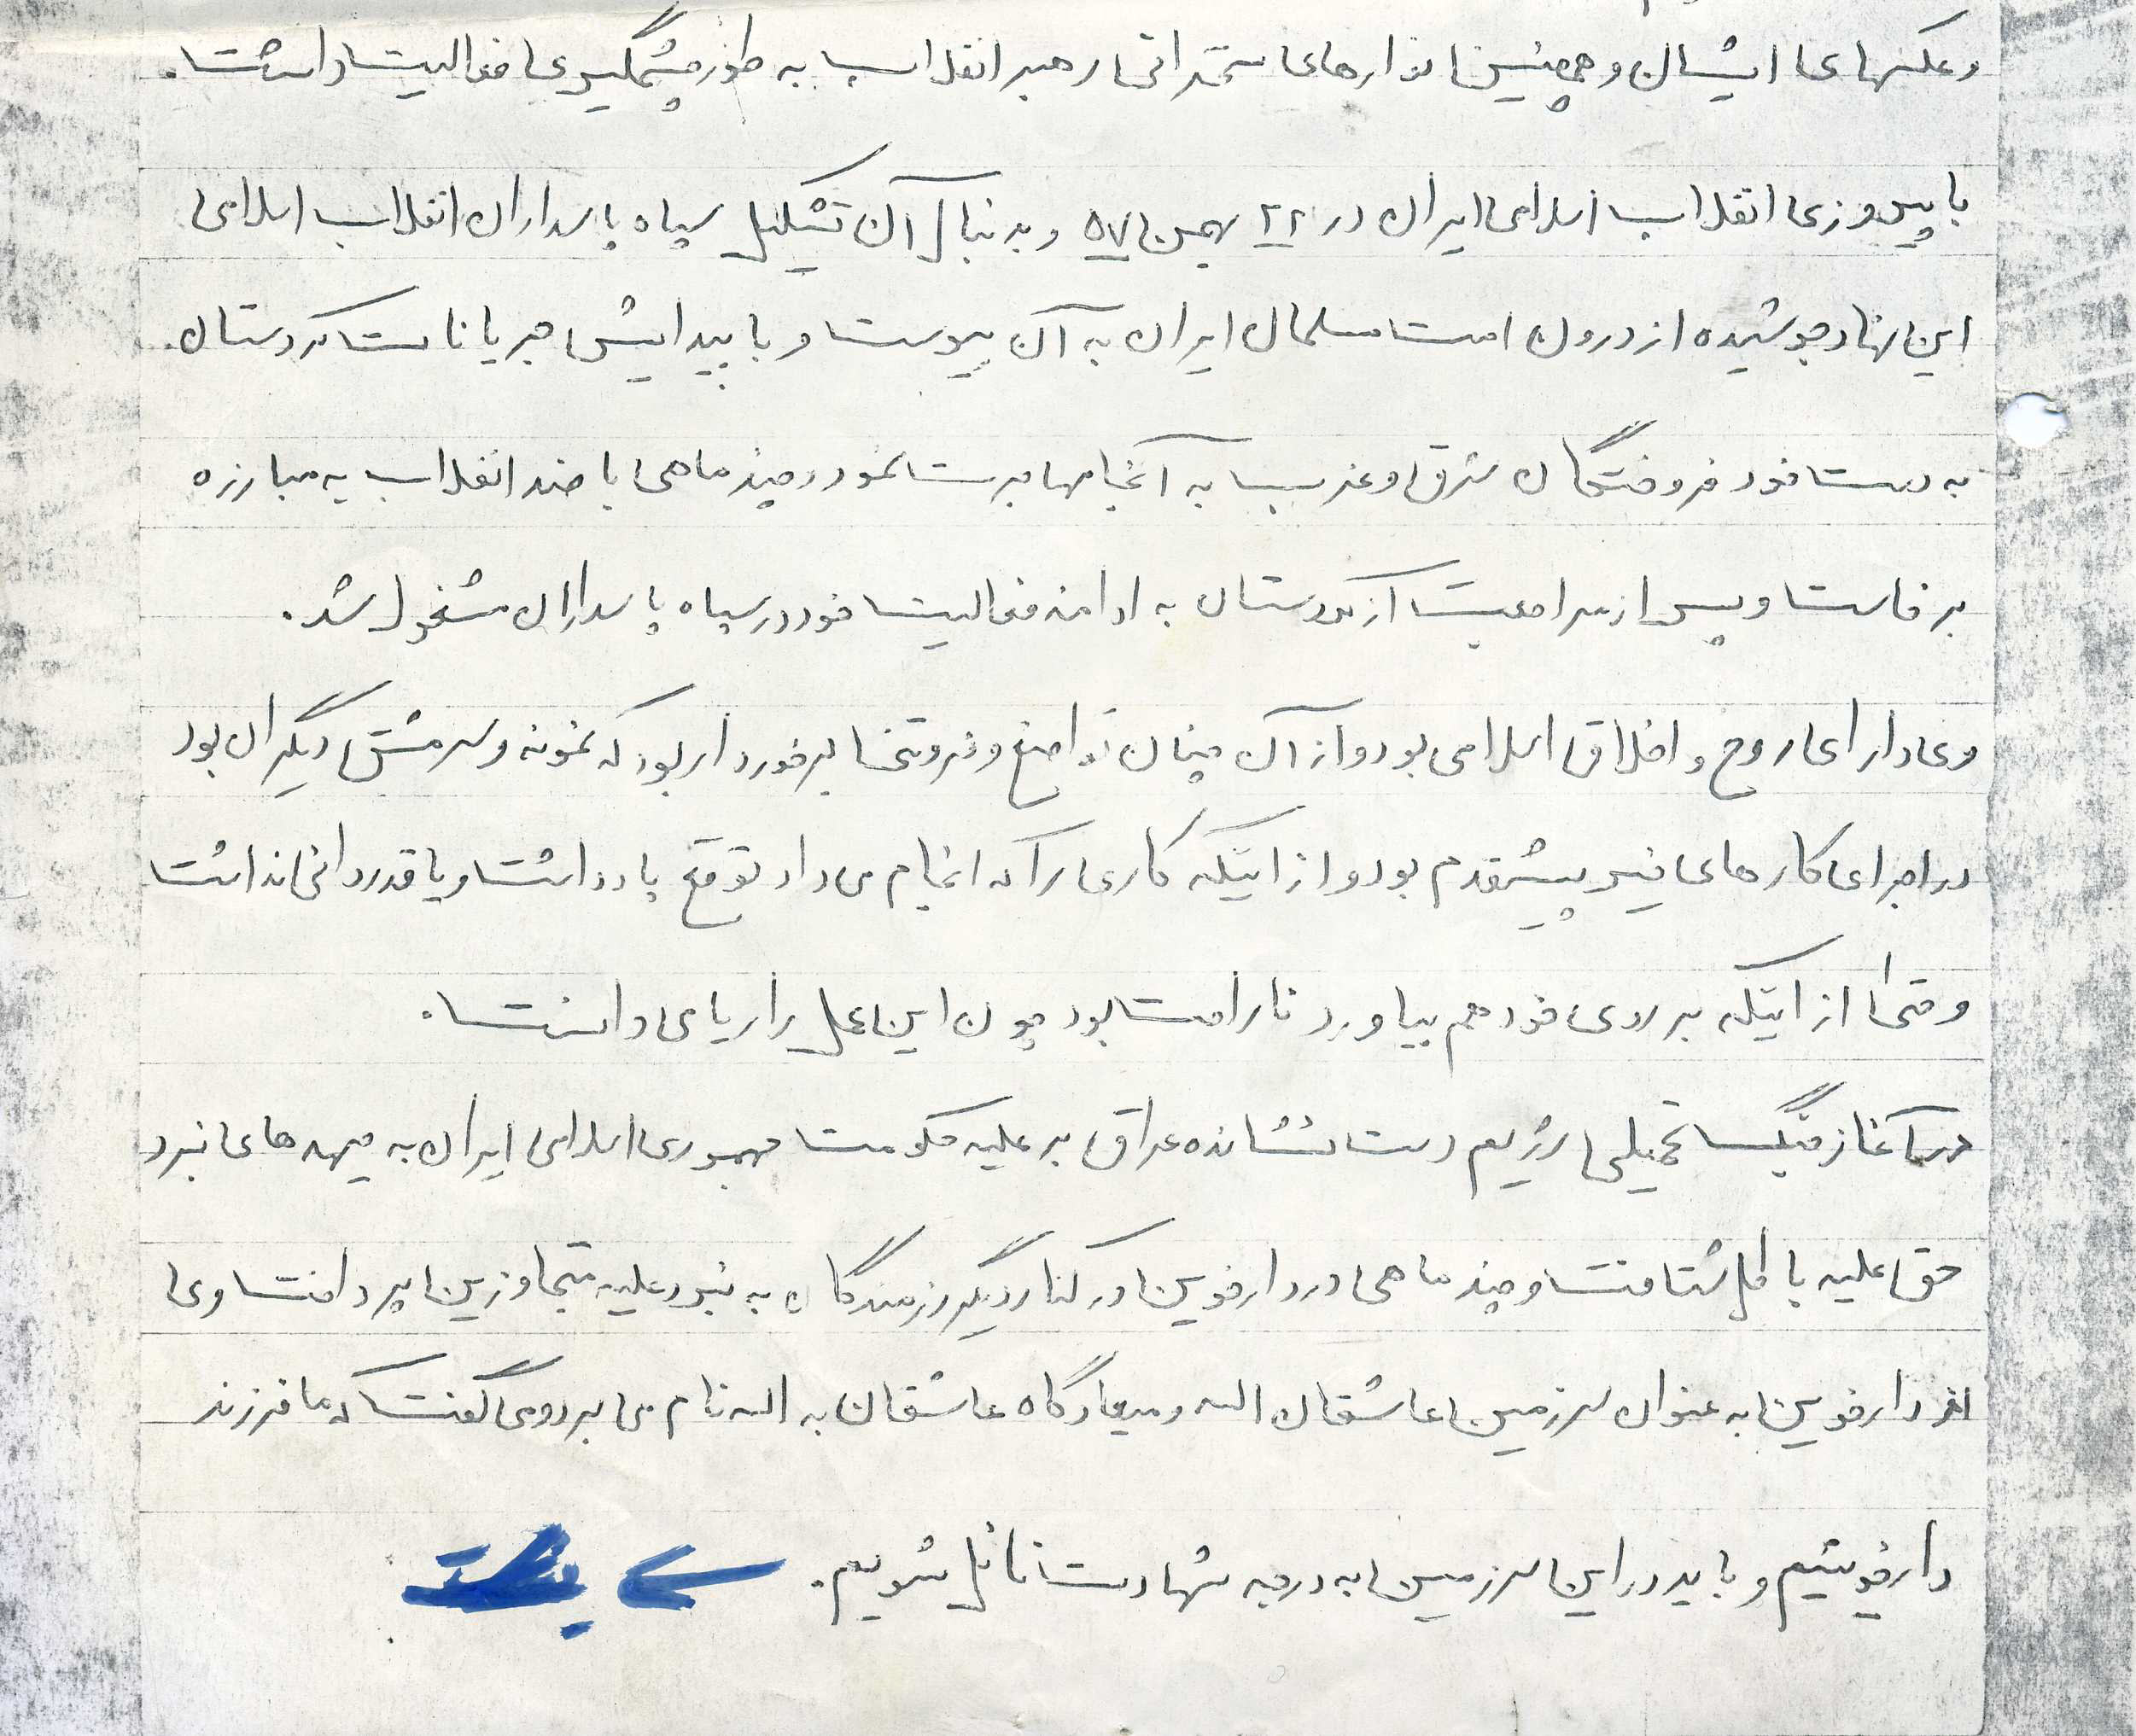 و عکسهای ایشان و همچنین نوارهای سخنرانی رهبر انقلاب به طور چشمگیری فعالیت داشت.
با پیروزی انقلاب اسلامی ایران در ۲۲ بهمن ۵۷ و بدنبال آن تشکیل سپاه پاسداران انقلاب اسلامی
این نهاد جوشیده از درون امت مسلمان ایران به آن پیوست و با پیدایش جریانات کردستان
به دست خود فروختگان شرق و غرب به آنجا مهاجرت نمود و چند ماهی با ضد انقلاب به مبارزه
برخاست و پس از مراجعت از کردستان به ادامه فعالیت خود در سپاه پاسداران مشغول شد.
وی دارای روح و اخلاق اسلامی بود و از آن چنان تواضع و فروتنی برخوردار بود که نمونه و سرمشق دیگران بود
در اجرای کارهای خیر پیشقدم بود و از اینکه کاری را که انجام می داد توقع پاداشت و یا قدردانی نداشت
و حتی از اینکه بر روی خود هم بیاورد ناراحت بود چون این عمل را ریا می دانست.
در آغاز جنگ تحمیلی رژیم دست نشانده عراق بر علیه حکومت جمهوری اسلامی ایران به جبهه های نبرد
حق علیه باطل شتافت و چند ماهی در دارخوین در کنار دیگر رزمندگان به نبرد علیه متجاوزین پرداخت وی
از دارخوین به عنوان سرزمین عاشقان الله و میعادگاه عاشقان به الله نام می برد و می گفت که ما فرزند
دارخوینیم و باید در این سرزمین به درجه شهادت نائل شویم.